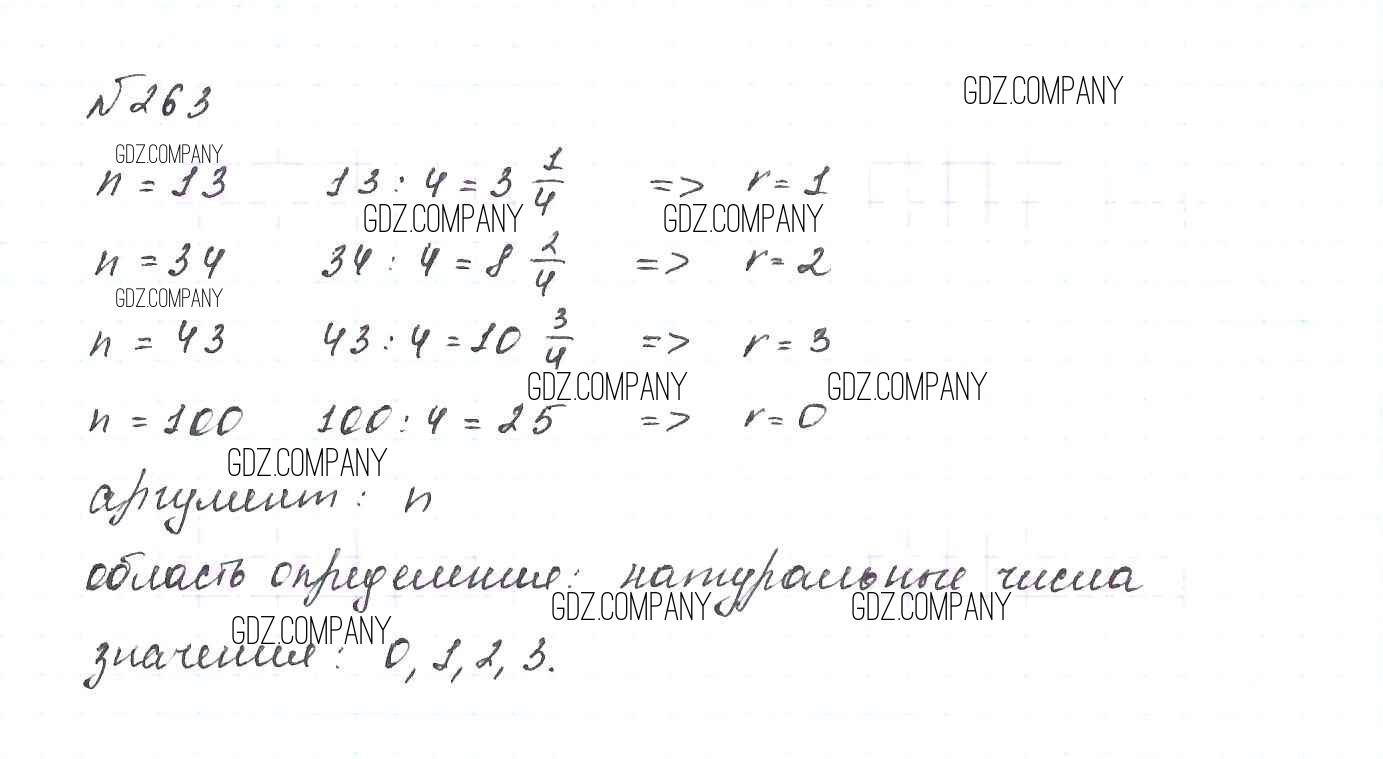 №263
GDZ.COMPANY
GDZ.COMPANY
n = 13 13 : 4 = 3 1/4 => r = 1
GDZ.COMPANY GDZ.COMPANY
n = 34 34 : 4 = 8 2/4 => r = 2
GDZ.COMPANY
n = 43 43 : 4 = 10 3/4 => r = 3
GDZ.COMPANY GDZ.COMPANY
n = 100 100 : 4 = 25 => r = 0
GDZ.COMPANY
аргумент: n
область определения: натуральные числа
GDZ.COMPANY GDZ.COMPANY
GDZ.COMPANY
значения: 0, 1, 2, 3.